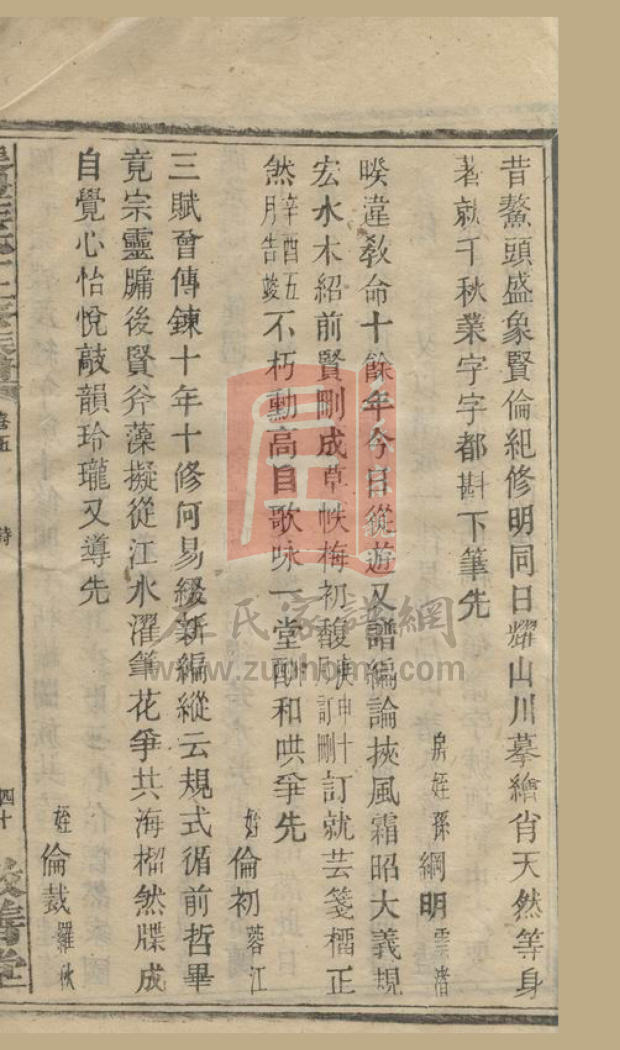 昔鰲頭盛象賢倫紀修明同日耀山川摹繪肖天然等身
著就千秋業字字都斟下筆先
房姪孫綱明雲渚
暌違敎命十餘年今日從遊又譜編論挾風霜昭大義規
宏水木紹前賢刪成草帙梅初馥庚申十月訂刪訂就芸箋橊正
然辛酉五月告竣不朽勳高自歌咏一堂酬和哄爭先
姪倫初蓉江
三賦曾傳鍊十年十修何易綴新編縱云規式循前哲畢
竟宗靈牖後賢斧藻擬從江水濯筆花爭共海橊然牒成
自覺心怡悅敲韻玲瓏又導先
姪倫裁羅秋
卷五
詩
四十
善堂
左氏家譜網
www.zuhome.com